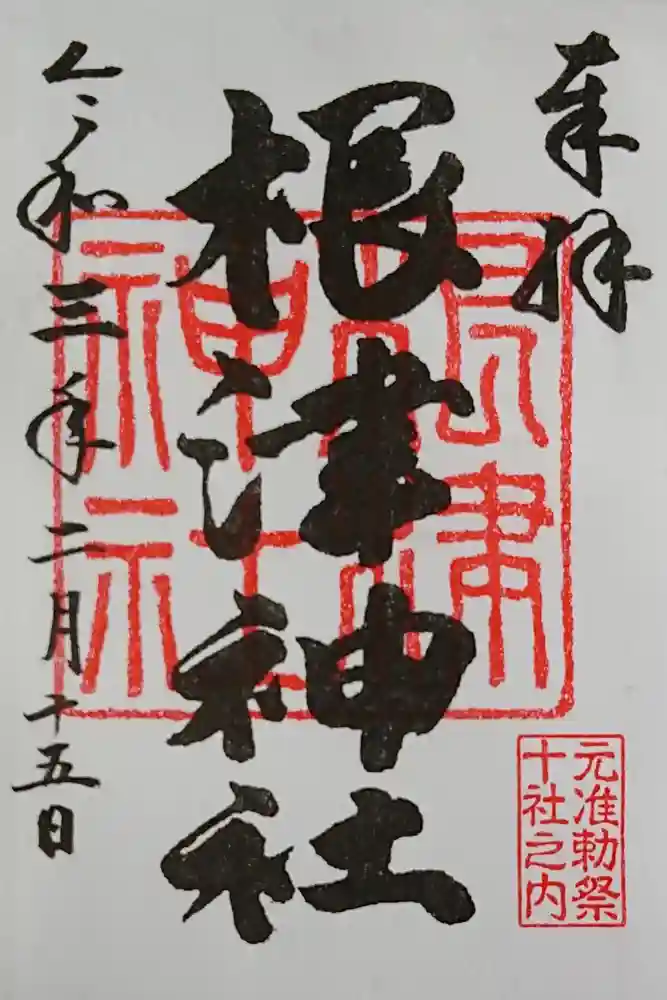 奉拝
根津神社
根津
神社
元准勅祭
十社之内
令和三年二月十五日